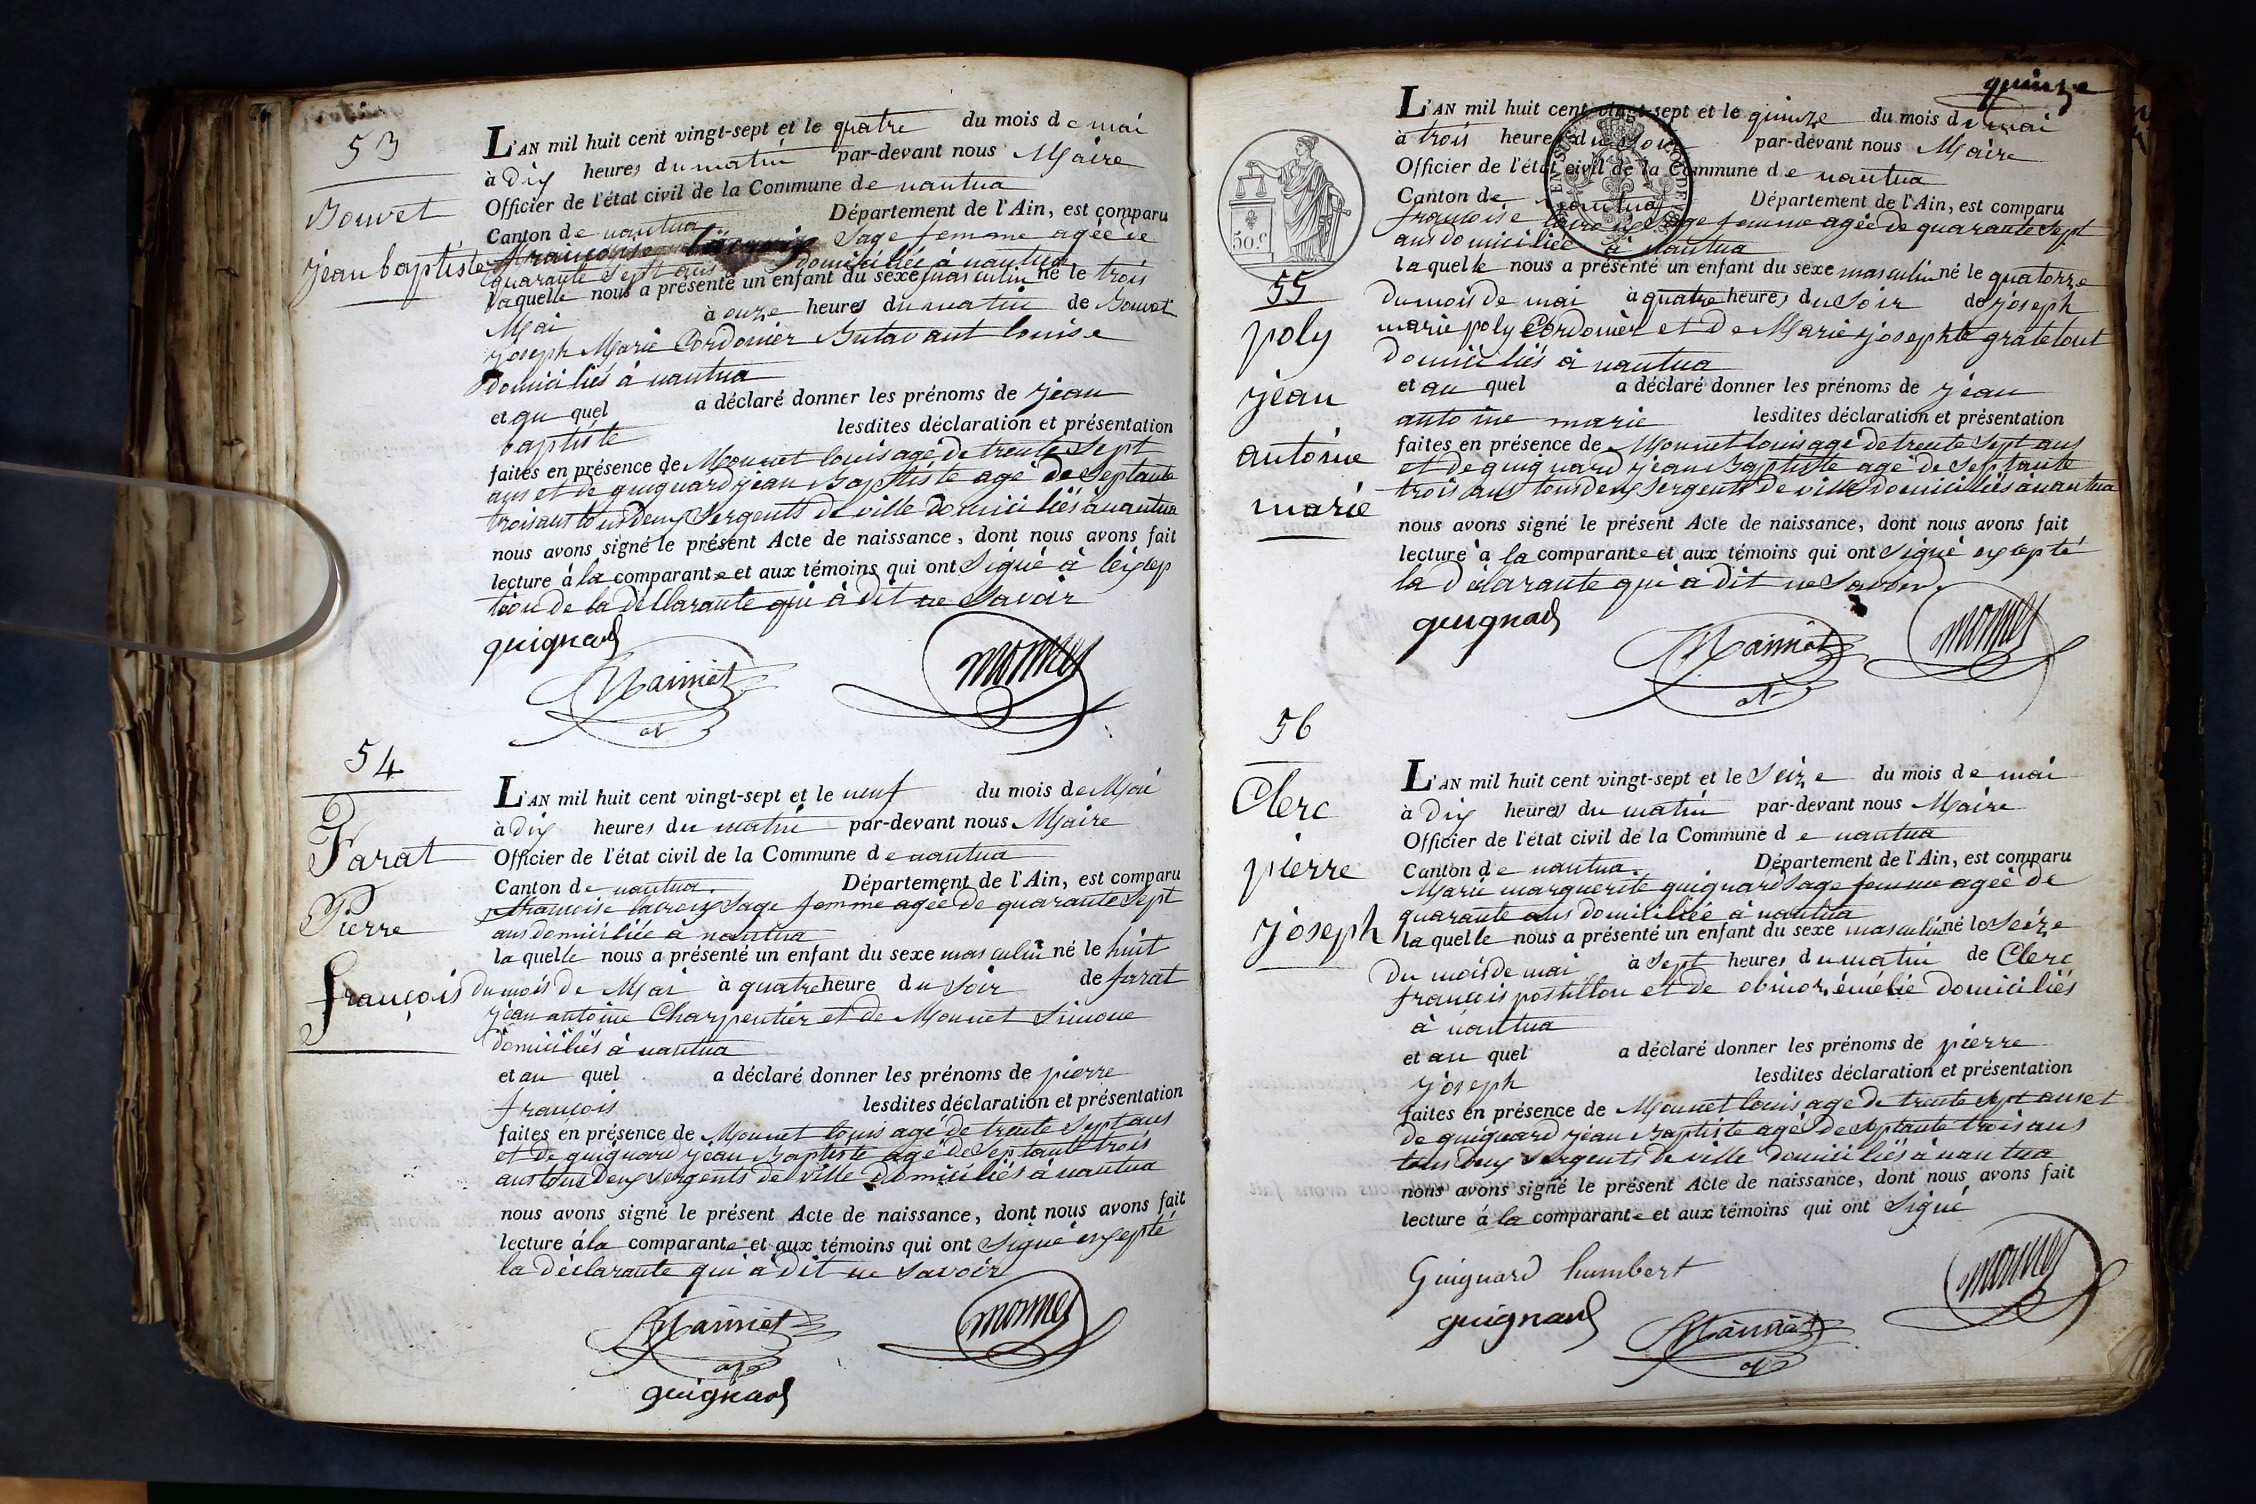 53
Bouvet
jean baptiste
L'AN mil huit cent vingt-sept et le quatre du mois de mai
à dix heures du matin par-devant nous Maire
Officier de l'état civil de la Commune de nantua
Canton de nantua Département de l'Ain, est comparu
françoise lacroix Sage femme agée de
quarante Sept ans domiciliée à nantua
laquelle nous a présenté un enfant du sexe masculin né le trois
Mai à onze heures du matin de Bouvet
joseph Marie Cordonier Butavant louise
domiciliés à nantua
et au quel a déclaré donner les prénoms de jean
baptiste lesdites déclaration et présentation
faites en présence de Monnet louis agé de trente Sept
ans et de guignard jean Baptiste agé de Septante
trois ans tous deux Sergents de ville domiciliés à nantua
nous avons signé le présent Acte de naissance, dont nous avons fait
lecture à la comparante et aux témoins qui ont Signé à léxcep
tion de la déclarante qui à dit ne Savoir
guignard
monnet
54
Farat
Pierre
françois
L'AN mil huit cent vingt-sept et le neuf du mois de Mai
à dix heures du matin par-devant nous Maire
Officier de l'état civil de la Commune de nantua
Canton de nantua. Département de l'Ain, est comparu
françoise lacroix Sage femme agée de quarante Sept
ans domiciliée a nantua
la quelle nous a présenté un enfant du sexe masculin né le huit
du mois de Mai à quatre heure du Soir de farat
jean antoine Charpentier et de Monnet Simone
domiciliés à nantua
et au quel a déclaré donner les prénoms de pierre
françois lesdites déclaration et présentation
faites en présence de Monnet louis agé de trente Sept ans
et de guignard jean Baptiste agé de Septante trois
ans tous deux Sergents de ville domiciliés à nantua
nous avons signé le présent Acte de naissance, dont nous avons fait
lecture à la comparante et aux témoins qui ont Signé éxcepté
la déclarante qui a dit ne Savoir
monnet
guignard
quinze
50.c
55
poly
jean
antoine
marie
L'AN mil huit cent vingt-sept et le quinze du mois de mai
à trois heures du Soir par-devant nous Maire
Officier de l'état civil de la Commune de nantua
Canton de nantua Département de l'Ain, est comparu
françoise lacroix Sage femme agée de quarante Sept
ans domiciliée à nantua
la quelle nous a présenté un enfant du sexe masculin né le quatorze
du mois de mai à quatre heures du Soir de joseph
marie poly Cordonier et de Marie josephte gratetout
domiciliés à nantua
et au quel a déclaré donner les prénoms de jean
antoine marie lesdites déclaration et présentation
faites en présence de Monnet louis agé de trente Sept ans
et de guignard jean Baptiste agé de Septante
trois ans tous deux Sergents de ville domiciliés à nantua
nous avons signé le présent Acte de naissance, dont nous avons fait
lecture à la comparante et aux témoins qui ont Signé excepté
la déclarante qui a dit ne Savoir.
guignard
monnet
56
Clerc
pierre
joseph
L'AN mil huit cent vingt-sept et le Seize du mois de mai
à dix heures du matin par-devant nous Maire
Officier de l'état civil de la Commune de nantua
Canton de nantua. Département de l'Ain, est comparu
Marie marguerite guignard Sage femme agée de
quarante ans domiciliée à nantua
la quelle nous a présenté un enfant du sexe masculin né le Seize
du mois de mai à Sept heures du matin de Clerc
françois postillon et de émélie domiciliés
à nantua
et au quel a déclaré donner les prénoms de pierre
joseph lesdites déclaration et présentation
faites en présence de Monnet louis agé de trente Sept ans et
de guignard jean Baptiste agé de Septante trois ans
tous deux Sergents de ville domiciliés à nantua
nous avons signé le présent Acte de naissance, dont nous avons fait
lecture à la comparante et aux témoins qui ont Signé
Guignard humbert
monnet
guignard